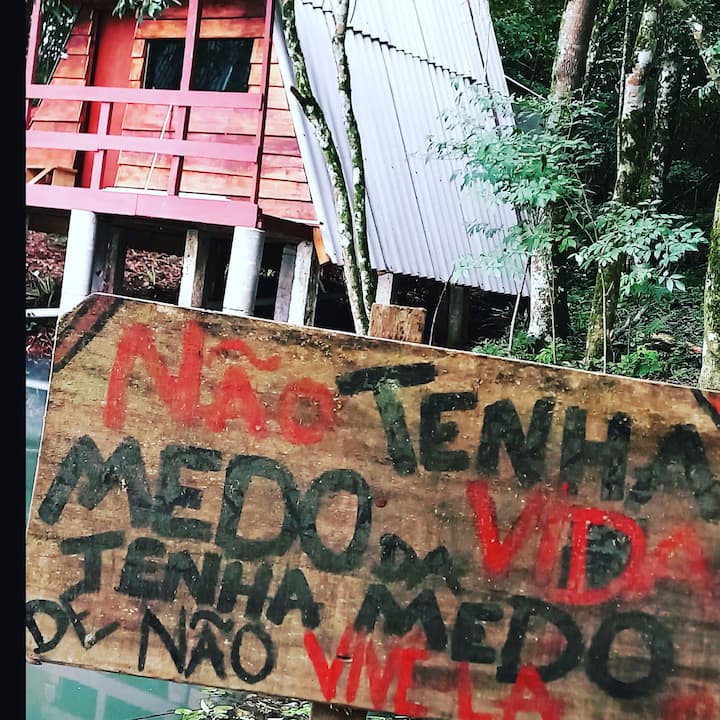 NÃO TENHA
MEDO DA VIDA
TENHA MEDO
DE NÃO VIVE-LA